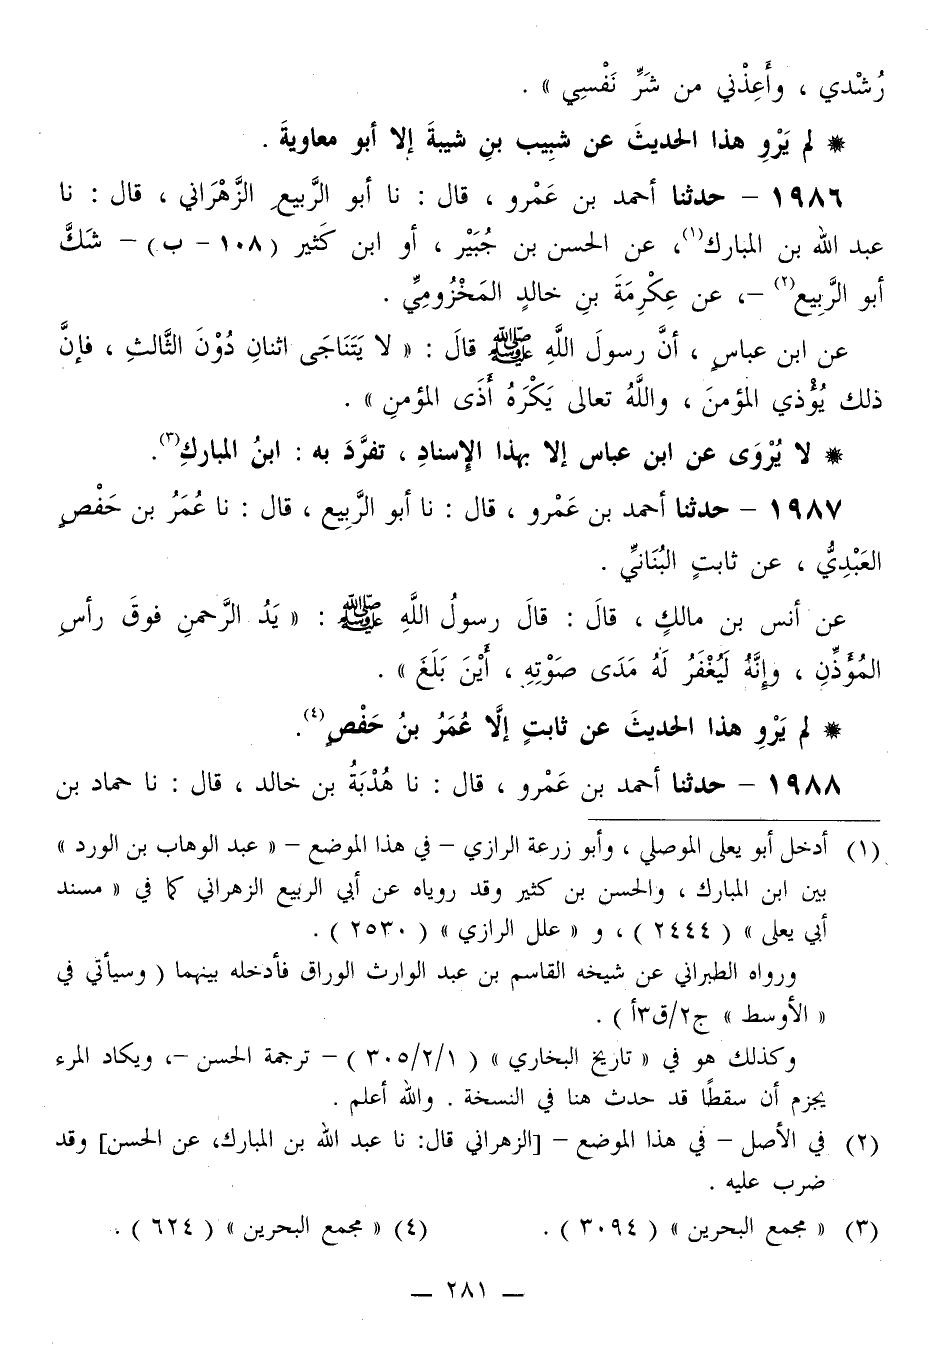 رُشْدي ، وأَعِذْني من شَرِّ نَفْسِي » .
* لم يَرْوِ هذا الحديثَ عن شبِيب بنِ شيبةَ إلا أبو معاويةَ .
١٩٨٦ – حدثنا أحمد بن عَمْرو ، قال : نا أبو الرَّبيع الزَّهْراني ، قال : نا
عبد الله بن المبارك(١)، عن الحسن بن جُبَيْر ، أو ابن كثير ( ١٠٨ – ب ) – شَكَّ
أبو الرَّبيع(٢) –، عن عِكْرِمَةَ بنِ خالدٍ المَخْزُوميِّ .
عن ابن عباسٍ ، أنَّ رسولَ اللَّهِ ﷺ قالَ : « لا يَتَنَاجَى اثنانِ دُوْنَ الثَّالثِ ، فإنَّ
ذلك يُؤْذي المؤمنَ ، واللَّهُ تعالى يَكْرَهُ أَذَى المؤمنِ » .
* لا يُرْوَى عن ابن عباس إلا بهذا الإسنادِ ، تفرَّدَ به : ابنُ المباركِ(٣).
١٩٨٧ – حدثنا أحمد بن عَمْرو ، قال : نا أبو الرَّبيع ، قال : نا عُمَرُ بن حَفْصٍ
العَبْدِيُّ ، عن ثابتٍ البُنَانيِّ .
عن أنس بن مالكٍ ، قالَ : قالَ رسولُ اللَّهِ ﷺ : « يَدُ الرَّحمنِ فوقَ رأسِ
المُؤَذِّنِ ، وإِنَّهُ لَيُغْفَرُ لَهُ مَدَى صَوْتِهِ ، أَيْنَ بَلَغَ » .
* لم يَرْوِ هذا الحديثَ عن ثابتٍ إلَّا عُمَرُ بنُ حَفْصٍ(٤).
١٩٨٨ – حدثنا أحمد بن عَمْرو ، قال : نا هُدْبَةُ بن خالد ، قال : نا حماد بن
(١) أدخل أبو يعلى الموصلي ، وأبو زرعة الرازي – في هذا الموضع – « عبد الوهاب بن الورد »
بين ابن المبارك ، والحسن بن كثير وقد روياه عن أبي الربيع الزهراني كما في « مسند
أبي يعلى » ( ٢٤٤٤ ) ، و « علل الرازي » ( ٢٥٣٠ ) .
ورواه الطبراني عن شيخه القاسم بن عبد الوارث الوراق فأدخله بينهما ( وسيأتي في
« الأوسط » ج٢/ق٣أ ) .
وكذلك هو في « تاريخ البخاري » ( ٣٠٥/٢/١ ) – ترجمة الحسن –، ويكاد المرء
يجزم أن سقطًا قد حدث هنا في النسخة . والله أعلم .
(٢) في الأصل – في هذا الموضع – [الزهراني قال: نا عبد الله بن المبارك، عن الحسن] وقد
ضرب عليه .
(٣) « مجمع البحرين » ( ٣٠٩٤ ) . (٤) « مجمع البحرين » ( ٦٢٤ ) .
— ٢٨١ —